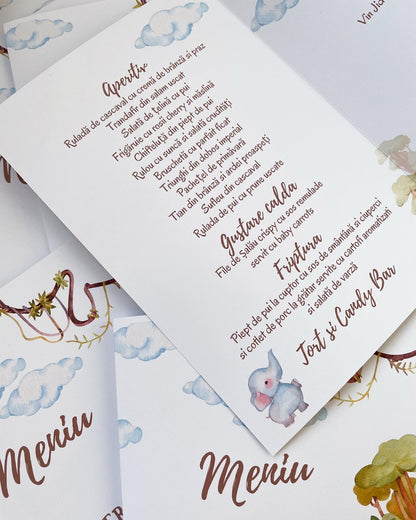 Aperitiv
Ruladă de cascaval cu cremă de brânză și praz
Trandafir din salam uscat
Salată de țelină cu pui
Frigăruie cu rosii cherry si măslină
Chifteluță din piept de pui
Rulou cu suncă si salată crudități
Bruschetă cu parfait ficat
Triunghi din dobos imperial
Pachețel de primăvară
Tian din brânză si ardei proaspeți
Sufleu din cascaval
Rulada de pui cu prune uscate
Gustare calda
File de Șalău crispy cu sos remulade
servit cu baby carrots
Friptura
Piept de pui la cuptor cu sos de smântână si ciuperci
si cotlet de porc la grătar servite cu cartofi aromatizati
si salată de varză
Tort si Candy Bar
Vin
Meniu
Meniu